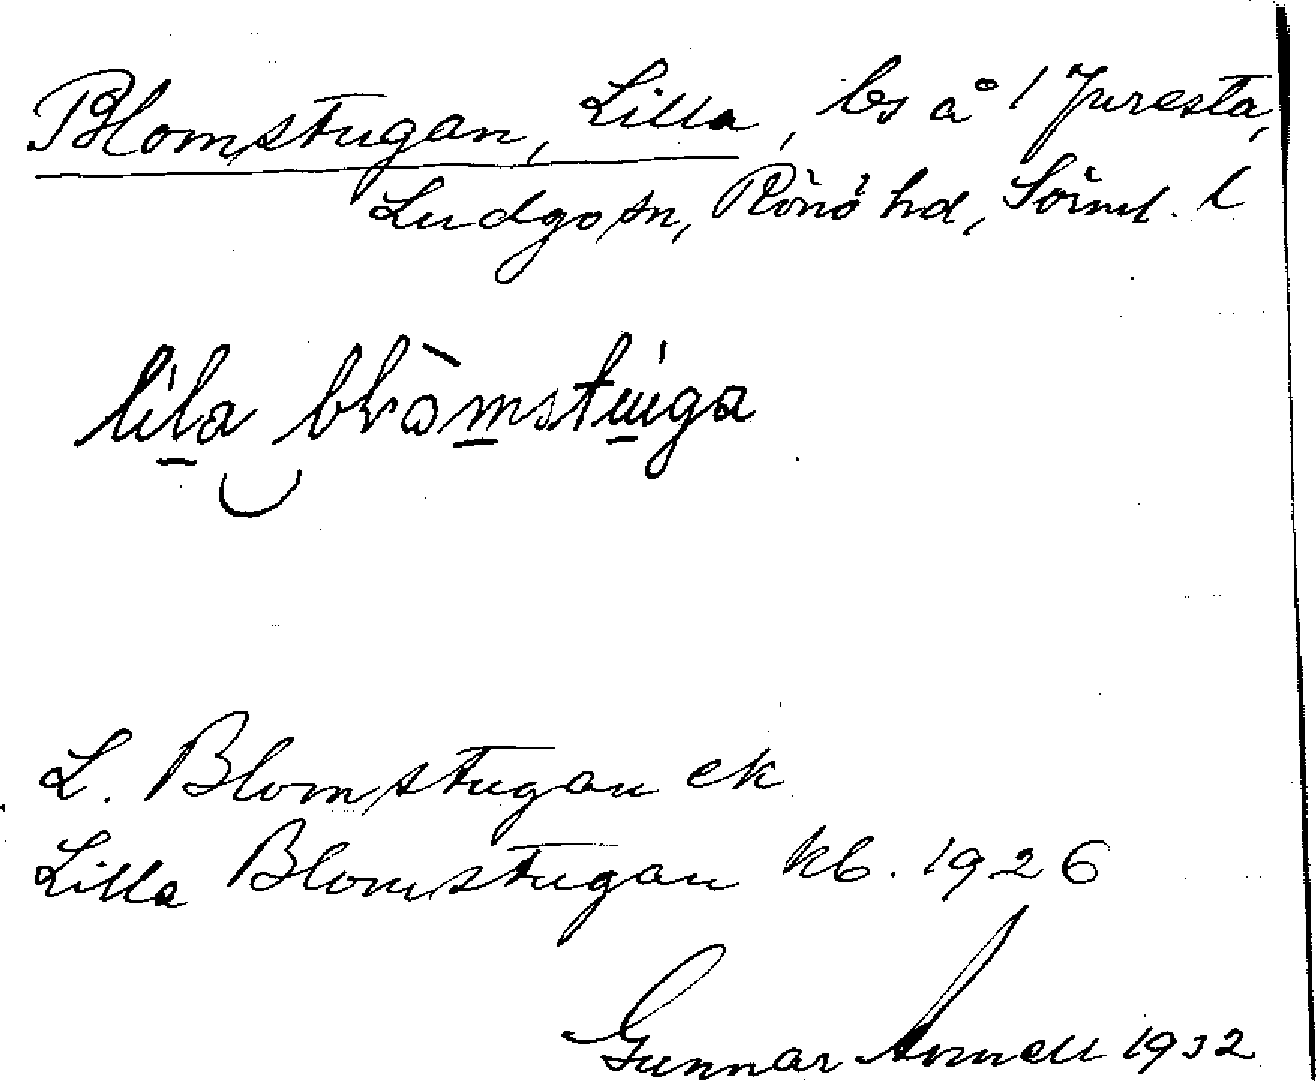 Blomstugan, Lilla, ls å 1 Juresta,
Ludgo sn, Rönö hd, Sörml. l
lila blòmstuga
L. Blomstugan ek
Lilla Blomstugan kb. 1926
Gunnar Annell 1932